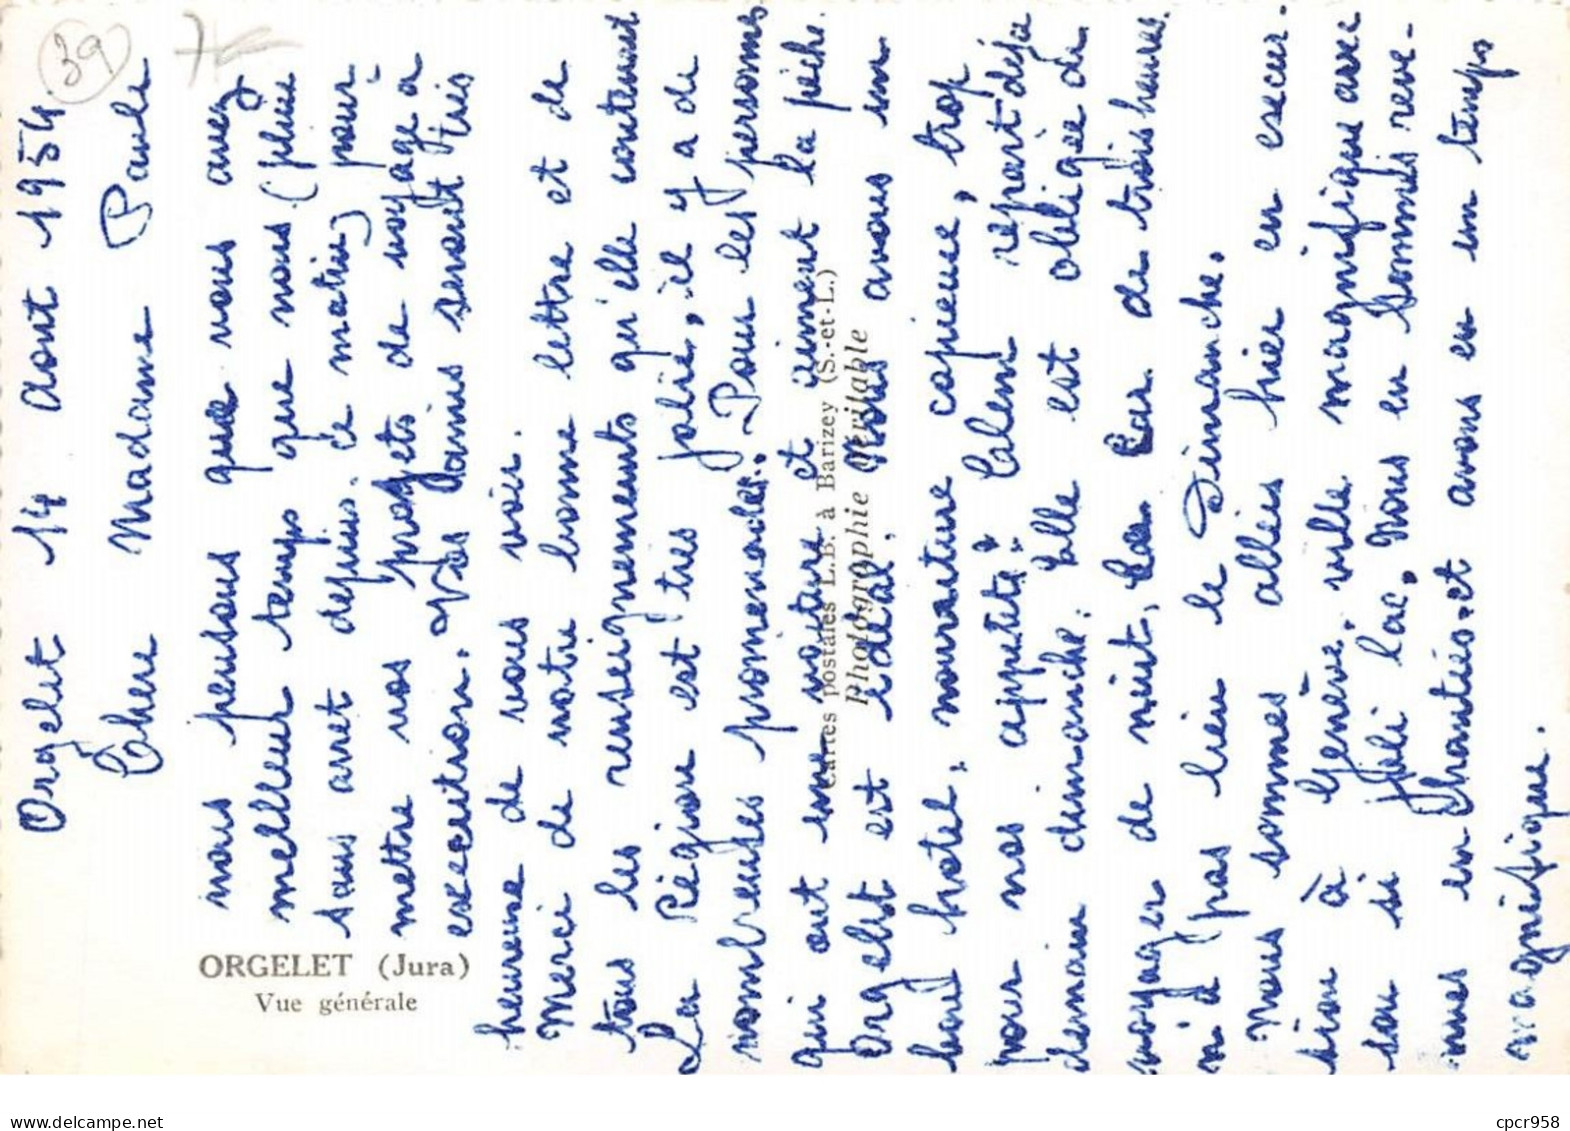 39
Orgelet 14 Aout 1954
Chere Madame Paule
nous pensons que vous avez
meilleur temps que nous (pluie
sans arret depuis ce matin) pour
mettre vos projets de voyage à
execution. Vos amis seront très
heureux de vous voir.
Merci de votre bonne lettre et de
tous les renseignements qu'elle contenait
La Région est très jolie, il y a de
nombreuses promenades. Pour les personnes
qui ont une voiture et aiment la pèche.
Orgelet est idéal. Nous avons un
bon hotel, nourriture copieuse, trop
pour nos appetits. repart déja
demain dimanche. Elle est obligée de
voyager de nuit, le car de trois heures
n'a pas lieu le Dimanche.
Nous sommes allés hier en excur-
sion à Genève. ville magnifique avec
son si joli lac, Nous en sommes reve-
nues enchantées. et avons eu un temps
magnifique.
ORGELET (Jura)
Vue générale
Cartes postales L.B. à Barizey (S.-et-L.)
Photographie véritable
www.delcampe.net
cpcr958